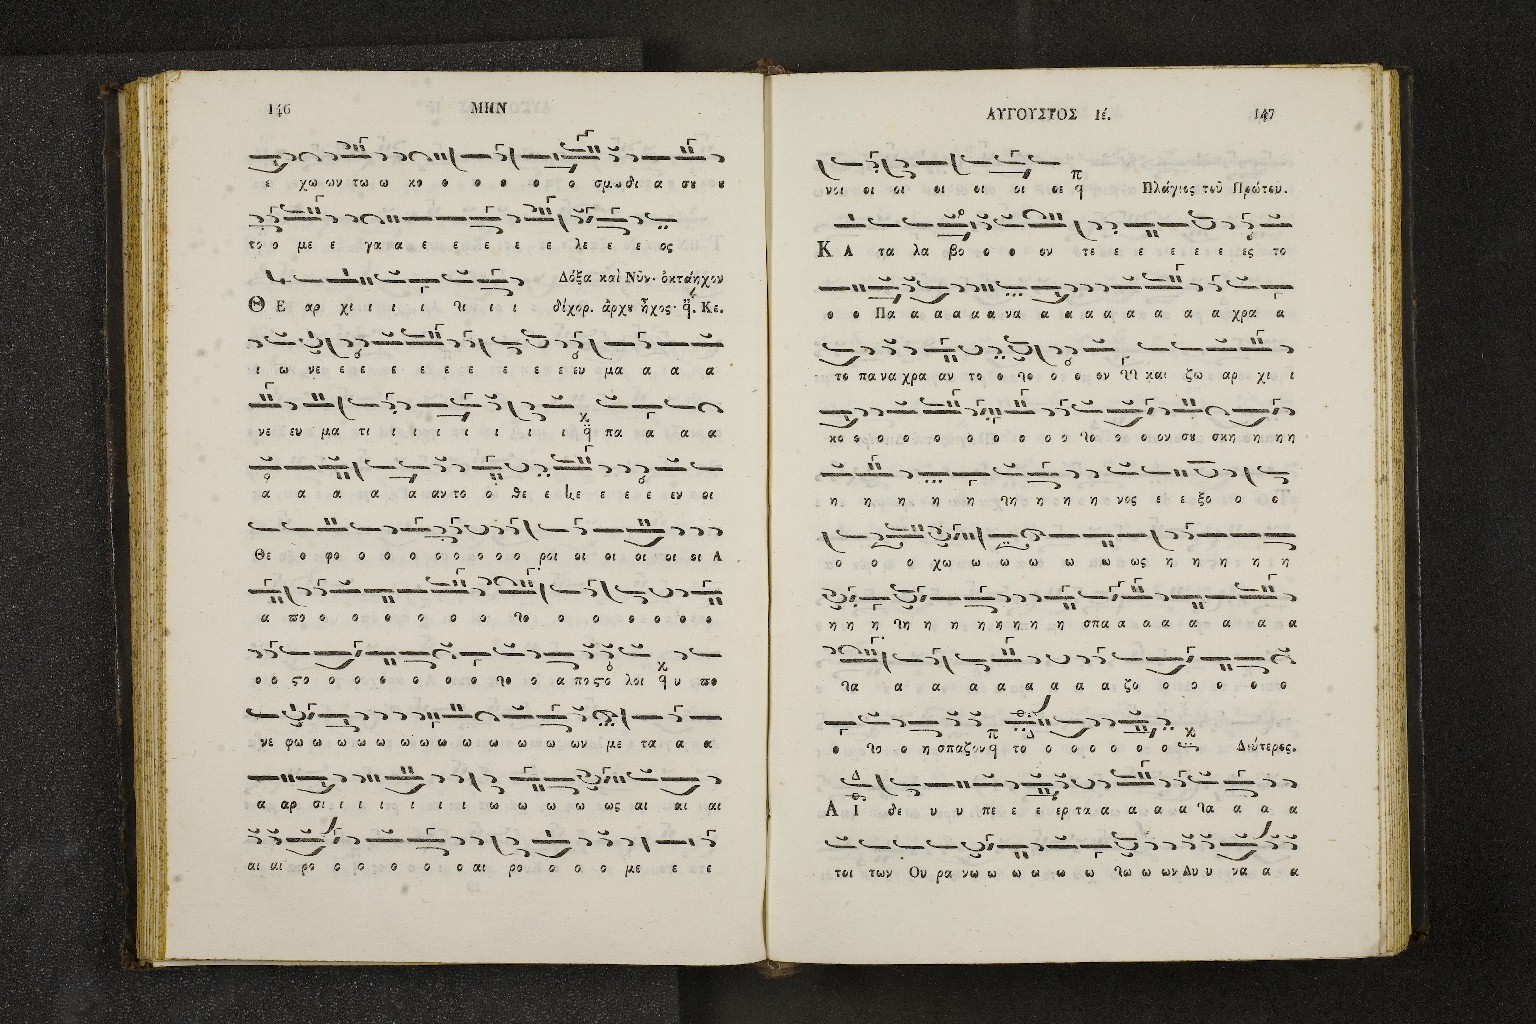 146 ΜΗΝ
ε χω ων τω ω κο ο ο ο ο ο σμωδι α σȣ ȣ
το ο με ε γα α ε ε ε ε ε λε ε ε ος
Δόξα καὶ Νῦν· ὀκτάηχον
Θ Ε αρ χι ι ι ι ι ι ι δίχορ. ἀρχȣ ἦχος· Κε.
ι ω νε ε ε ε ε ε ε ε ε ε ευ μα α α α
νε ευ μα τι ι ι ι ι ι ι ι ι πα α α α
α α α α α αν το ο θε ε ε ε ε ε εν οι
Θε ο φο ο ο ο ο ο ο ο ο ροι οι οι οι οι οι Α
α πο ο ο ο ο ο ο ο ο ο ο ο ο ο
ο ο ϛο ο ο ο ο ο ο ο ο ο α πο ϛο λοι υ πο
νε φω ω ω ω ω ω ω ω ω ω ω ω ων με τα α α
α αρ σι ι ι ι ι ι ι ω ω ω ω ω ως αι αι αι
αι αι ρο ο ο ο ο ο ο αι ρο ο ο ο με ε ε
ΑΥΓΟΥΣΤΟΣ Ιέ. 147
νοι οι οι οι οι οι οε Πλάγιος τοῦ Πρώτου.
Κ Α τα λα βο ο ο ον τε ε ε ε ε ε ες το
ο ο Πα α α α α α να α α α α α α α α χρα α
το πα να χρα αν το ο ο ο ον και ζω αρ χι ι
κο ο ο ο ο ο ο ο ο ο ο ο ον σȣ σκη η η η
η η η η η η η η η νος ε ε ξο ο ο
ο ο ο χω ω ω ω ω ω ως η η η η η
η η η η η η η η η σπα α α α α α α α
α α α α α α α α ζο ο ο ο ο ο
ο ο η σπαζον το ο ο ο ο ο ο Δεύτερος.
Α Ι δε υ υ πε ε ε ερ τα α α α α α α α
τοι των Ου ρα νω ω ω ω ω ω ω ω ων Δυ υ να α α